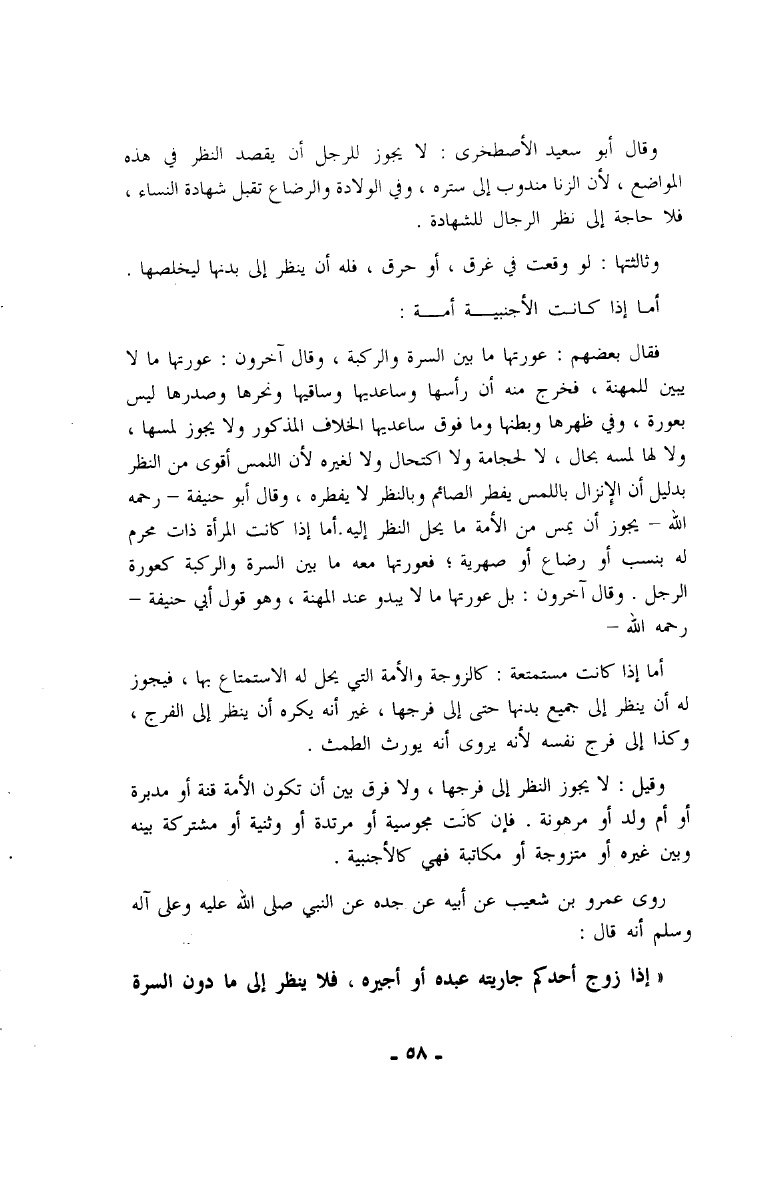 وقال أبو سعيد الأصطخرى : لا يجوز للرجل أن يقصد النظر في هذه
المواضع ، لأن الزنا مندوب إلى ستره ، وفي الولادة والرضاع تقبل شهادة النساء ،
فلا حاجة إلى نظر الرجال للشهادة .
وثالثتها : لو وقعت في غرق ، أو حرق ، فله أن ينظر إلى بدنها ليخلصها .
أما إذا كانت الأجنبيـــة أمـــة :
فقال بعضهم : عورتها ما بين السرة والركبة ، وقال آخرون : عورتها ما لا
يبين للمهنة ، فخرج منه أن رأسها وساعديها وساقيها ونحرها وصدرها ليس
بعورة ، وفي ظهرها وبطنها وما فوق ساعديها الخلاف المذكور ولا يجوز لمسها ،
ولا لها لمسه بحال ، لا لحجامة ولا اكتحال ولا لغيره لأن اللمس أقوى من النظر
بدليل أن الإنزال باللمس يفطر الصائم وبالنظر لا يفطره ، وقال أبو حنيفة – رحمه
الله – يجوز أن يمس من الأمة ما يحل النظر إليه.أما إذا كانت المرأة ذات محرم
له بنسب أو رضاع أو صهرية ؛ فعورتها معه ما بين السرة والركبة كعورة
الرجل . وقال آخرون : بل عورتها ما لا يبدو عند المهنة ، وهو قول أبي حنيفة –
رحمه الله –
أما إذا كانت مستمتعة : كالزوجة والأمة التي يحل له الاستمتاع بها ، فيجوز
له أن ينظر إلى جميع بدنها حتى إلى فرجها ، غير أنه يكره أن ينظر إلى الفرج ،
وكذا إلى فرج نفسه لأنه يروى أنه يورث الطمث .
وقيل : لا يجوز النظر إلى فرجها ، ولا فرق بين أن تكون الأمة قنة أو مدبرة
أو أم ولد أو مرهونة . فإن كانت مجوسية أو مرتدة أو وثنية أو مشتركة بينه
وبين غيره أو متزوجة أو مكاتبة فهي كالأجنبية .
روى عمرو بن شعيب عن أبيه عن جده عن النبي صلى الله عليه وعلى آله
وسلم أنه قال :
« إذا زوج أحدكم جاريته عبده أو أجيره ، فلا ينظر إلى ما دون السرة
ـ ٥٨ ـ